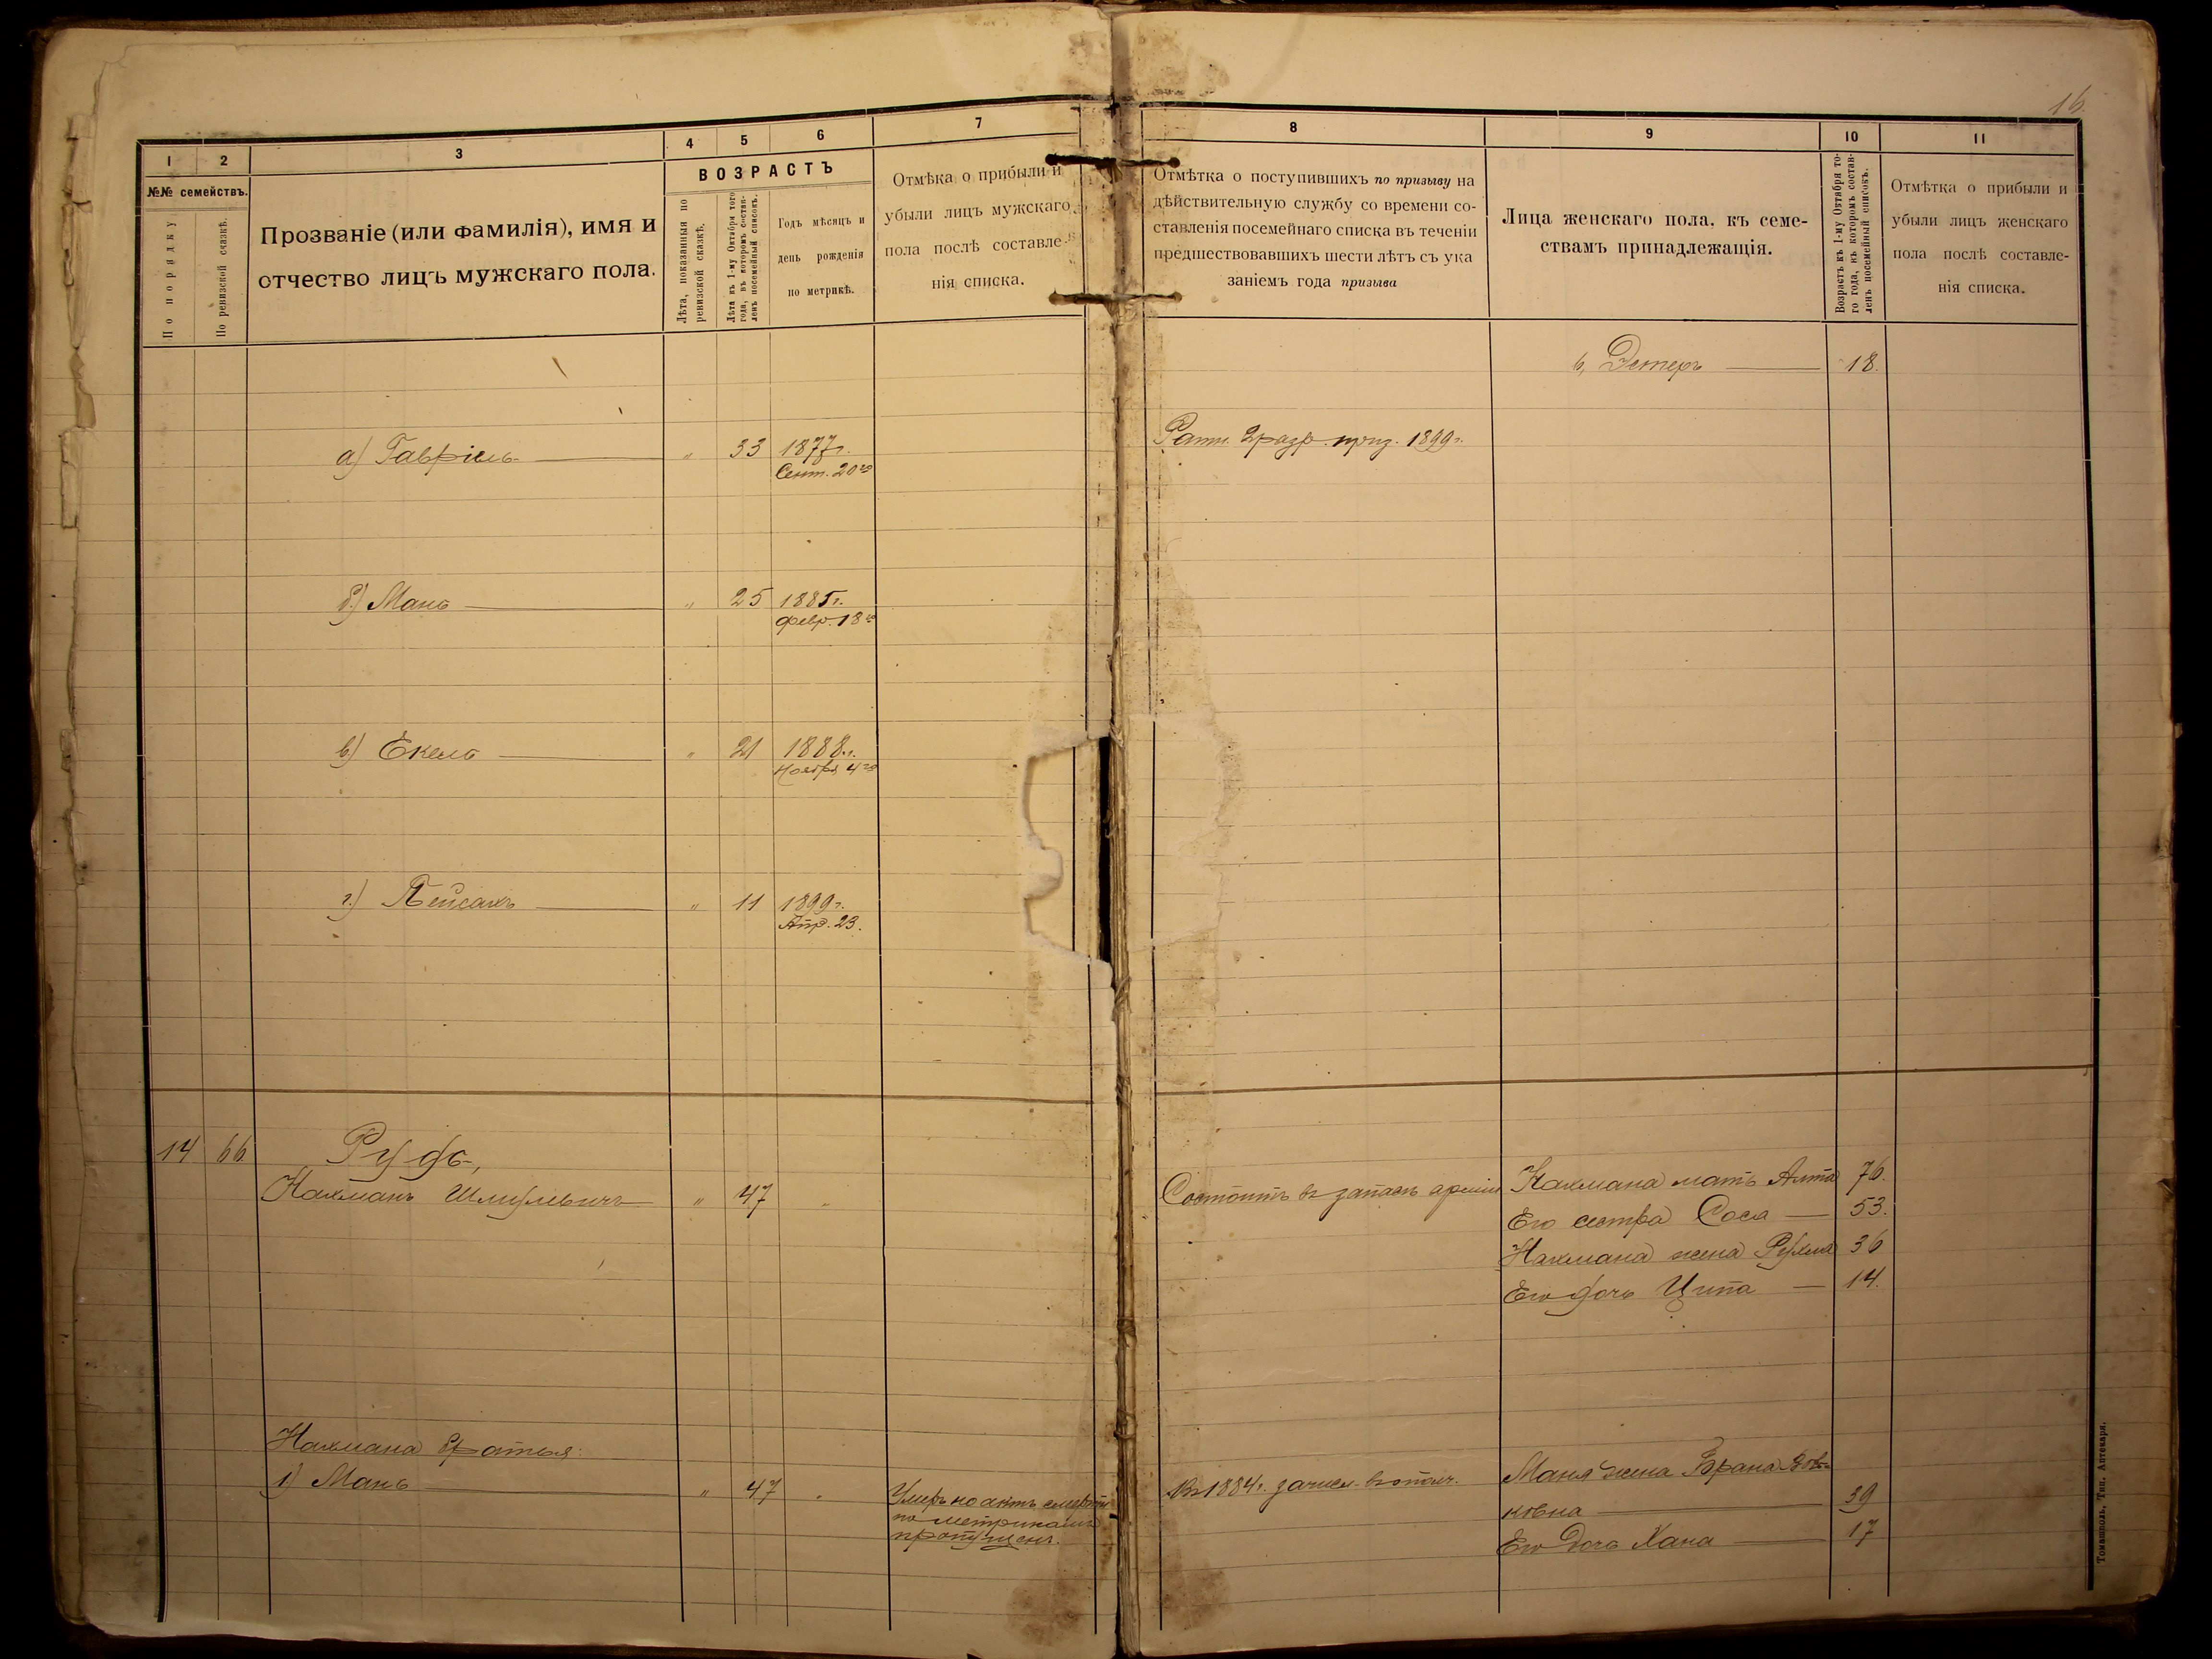 16.
1 2 3 4 5 6 7 8 9 10 11
№№ семействъ.
По порядку
По ревизской сказкѣ.
Прозваніе (или Фамилія), имя и
отчество лицъ мужскаго пола.
ВОЗРАСТЪ
Лѣта, показанныя по
ревизской сказкѣ.
Лѣта къ 1-му Октября того
года, въ которомъ состав-
ленъ посемейный списокъ.
Годъ мѣсяцъ и
день рожденія
по метрикѣ.
Отмѣка о прибыли и
убыли лицъ мужскаго
пола послѣ составле-
нія списка.
Отмѣтка о поступившихъ по призыву на
дѣйствительную службу со времени со-
ставленія посемейнаго списка въ теченіи
предшествовавшихъ шести лѣтъ съ ука
заніемъ года призыва
Лица женскаго пола, къ семе-
ствамъ принадлежащія.
Возрастъ къ 1-му Октября то-
го года, въ которомъ состав-
ленъ посемейный списокъ.
Отмѣтка о прибыли и
убыли лицъ женскаго
пола послѣ составле-
нія списка.
в, Эстеръ 18.
а) Гавріель " 33 1877 г. Ратн. 2 разр. приз. 1899 г.
Сент. 20 го
б) Мань " 25 1885 г.
Февр. 18 го
в) Екель " 21 1888 г.
Ноября 4 го
г) Пейсахъ " 11 1899 г.
Апр. 23.
14 66 Рудь,
Нахманъ Шмулевичъ " 47 " Состоитъ въ запасѣ арміи
Нахмана мать Алта 76.
Его сестра Сося 53.
Нахмана жена Рухля 36
Его дочь Ципа 14.
Нахмана братья:
1) Мань " 47 "
Умеръ но актъ смерти
по метрикамъ
пропущенъ.
Въ 1884 г. зачисл. въ ополч.
Маня жена Брана Вов-
ковна 39
Его дочь Хана 17
Томашполь, Тип. Аптекаря.